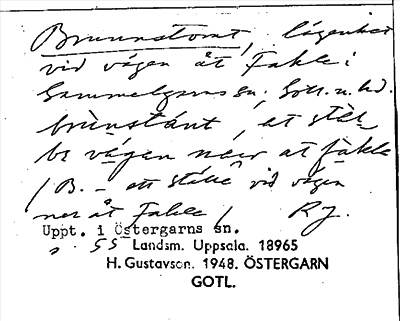 Brunnstomt, lägenhet
vid vägen åt Fakle i
Gammelgarns sn, Gotl. n. hd.
brùnstánt, et stèl-
be vägen neɪr at fakle
/ B. – ett ställe vid vägen
ner åt Fakle / RJ.
Uppt. i Östergarns sn.
" SS Landsm. Uppsala. 18965
H. Gustavson. 1948. ÖSTERGARN
GOTL.